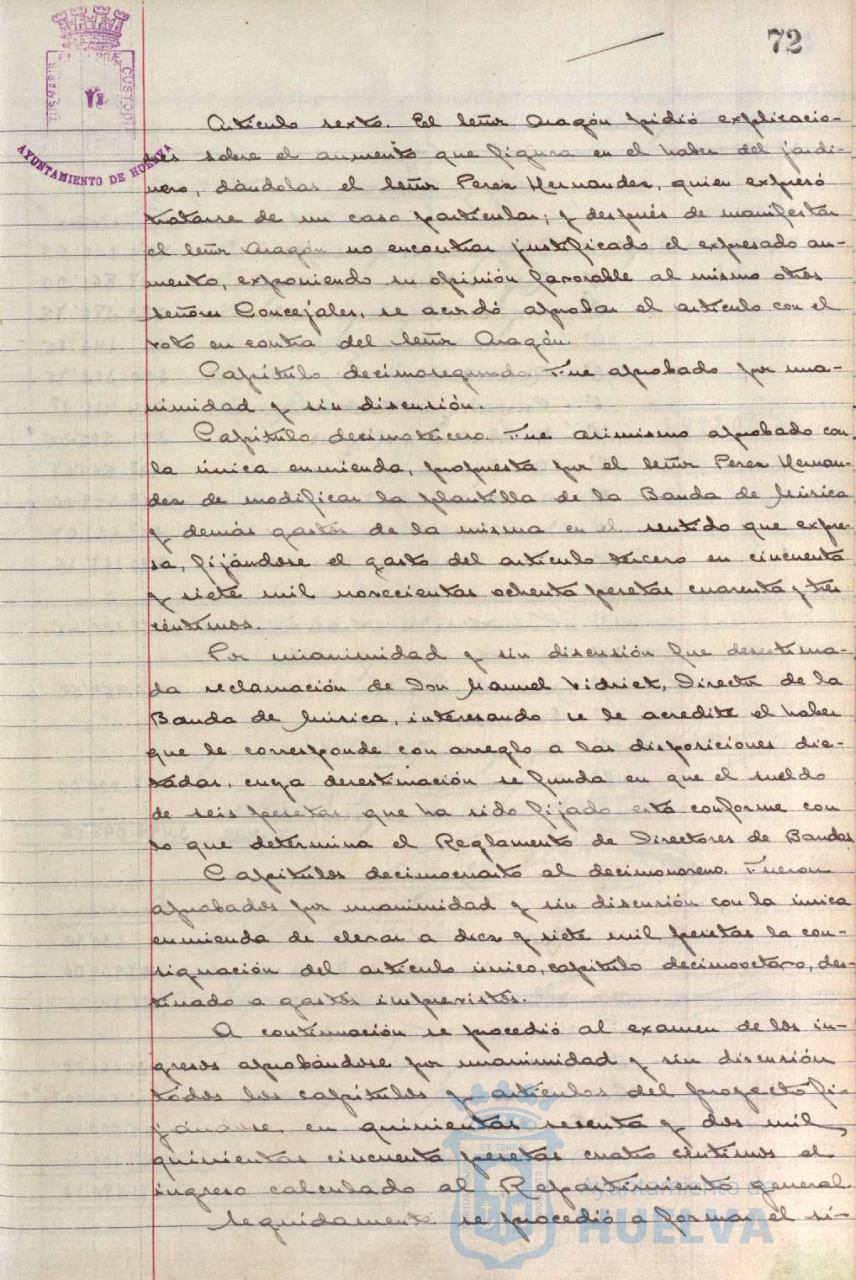 72
AYUNTAMIENTO DE HUELVA
Artículo sexto. El Señor Aragón pidió explicacio-
nes sobre el aumento que figura en el haber del jardi-
nero, dándolas el Señor Perez Hernandez, quien expresó
tratarse de un caso particular; y después de manifestar
el Señor Aragón no encontrar justificado el expresado au-
mento, exponiendo su opinión favorable al mismo otros
Señores Concejales, se acordó aprobar el artículo con el
voto en contra del Señor Aragón.
Capítulo decimosegundo. Fue aprobado por una-
nimidad y sin discusión.
Capítulo decimotercero. Fue asimismo aprobado con
la única enmienda, propuesta por el Señor Perez Hernan-
dez de modificar la plantilla de la Banda de Música
y demás gastos de la misma en el sentido que expre-
sa, fijándose el gasto del artículo tercero en cincuenta
y siete mil novecientas ochenta pesetas cuarenta y tres
céntimos.
Por unanimidad y sin discusión fue desestima-
da reclamación de Don Manuel Vidriet, Director de la
Banda de Música, interesando se le acredite el haber
que le corresponde con arreglo a las disposiciones dic-
tadas, cuya desestimación se funda en que el sueldo
de seis pesetas que ha sido fijado está conforme con
lo que determina el Reglamento de Directores de Bandas
Capítulos decimocuarto al decimonoveno. Fueron
aprobados por unanimidad y sin discusión con la única
enmienda de elevar a diez y siete mil pesetas la con-
signación del artículo único, capítulo decimooctavo, des-
tinado a gastos imprevistos.
A continuación se procedió al examen de los in-
gresos aprobándose por unanimidad y sin discusión
todos los capítulos y artículos del proyecto fi-
jándose en quinientas sesenta y dos mil
quinientas cincuenta pesetas cuatro céntimos el
ingreso calculado al Repartimiento general
Seguidamente se procedió a formar el si-
Ayuntamiento de
HUELVA